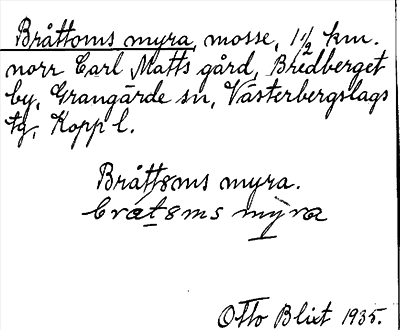 Bråttoms myra, mosse, 1 1/2 km.
norr Carl Matts gård, Bredberget
by, Grangärde sn, Västerbergslags
tg, Kopp l.
Bråttoms myra.
Otto Blixt 1935.